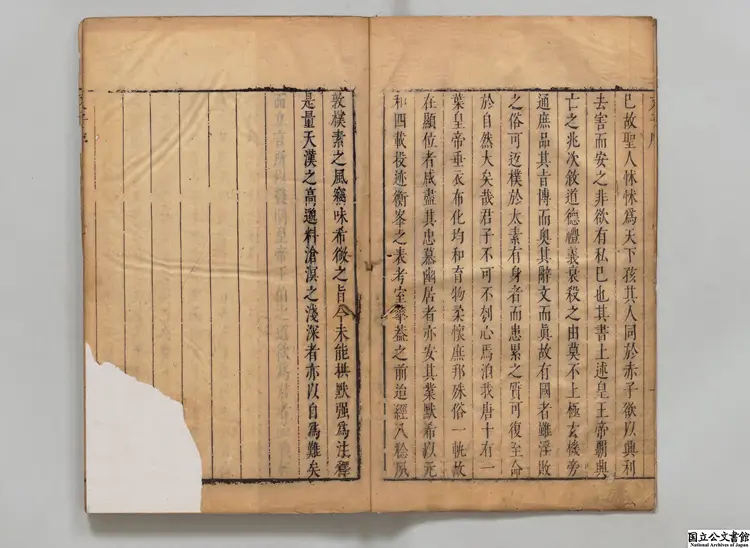 已故聖人恘恘爲天下孩其人同於赤子欲以興利
去害而安之非欲有私已也其書上述皇王帝霸興
亡之兆次敘道德禮義衰殺之由莫不上極玄機旁
通庶品其旨博而奧其辭文而真故有國者雖淫敗
之俗可返樸於太素有身者而患累之質可復至命
於自然大矣哉君子不可不刳心焉洎我唐十有一
葉皇帝垂衣布化均和育物柔懷庶邦殊俗一軌故
在顯位者咸盡其忠慕幽居者亦安其業默希以元
和四載投迹衡峯之表考室華蓋之前迨經八稔夙
敦樸素之風竊味希微之旨今未能拱默强爲注釋
是量天漢之高邈料滄溟之淺深者亦以自爲難矣
国立公文書館
National Archives of Japan